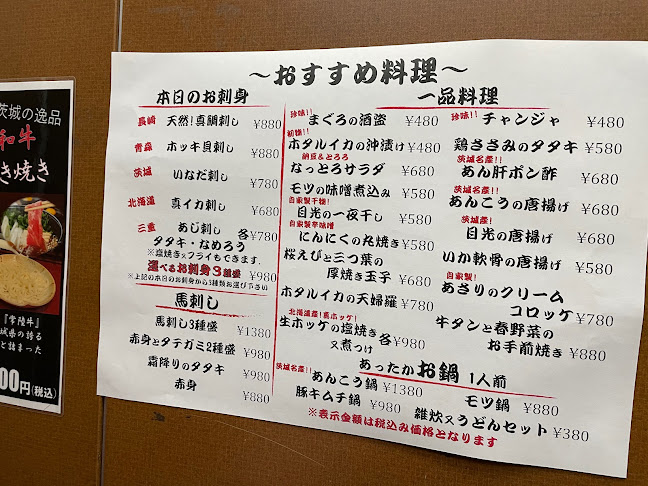 茨城の逸品
和牛
き焼き
『常陸牛』
城県の誇る
と詰まった
00円(税込)
～おすすめ料理～
本日のお刺身
長崎 天然!真鯛刺し ¥880
青森 ホッキ貝刺し ¥880
茨城 いなだ刺し ¥780
北海道 真イカ刺し ¥680
三重 あじ刺し 各¥780
タタキ・なめろう
※塩焼き又フライもできます
選べるお刺身3種盛 ¥980
※上記の本日のお刺身から3種類お選び下さい
馬刺し
馬刺し3種盛 ¥1380
赤身とタテガミ2種盛 ¥980
霜降りのタタキ ¥980
赤身 ¥880
一品料理
珍味!!
まぐろの酒盗 ¥480
初物!!
ホタルイカの沖漬け ¥480
納豆&とろろ
なっとろサラダ ¥680
モツの味噌煮込み ¥580
自家製干物!
目光の一夜干し ¥580
自家製辛味噌
にんにくの丸焼き ¥580
桜えびと三つ葉の
厚焼き玉子 ¥680
ホタルイカの天婦羅 ¥780
北海道産!真ホッケ!
生ホッケの塩焼き 各¥980
又煮つけ
珍味!!
チャンジャ ¥480
鶏ささみのタタキ ¥580
茨城名産!!
あん肝ポン酢 ¥680
茨城名産!!
あんこうの唐揚げ ¥680
茨城産!
目光の唐揚げ ¥580
いか軟骨の唐揚げ ¥580
自家製!
あさりのクリーム
コロッケ ¥780
牛タンと春野菜の
お手前焼き ¥880
あったかお鍋 1人前
茨城名産!!
あんこう鍋 ¥1380
モツ鍋 ¥880
豚キムチ鍋 ¥980
雑炊又うどんセット ¥380
※表示金額は税込み価格となります